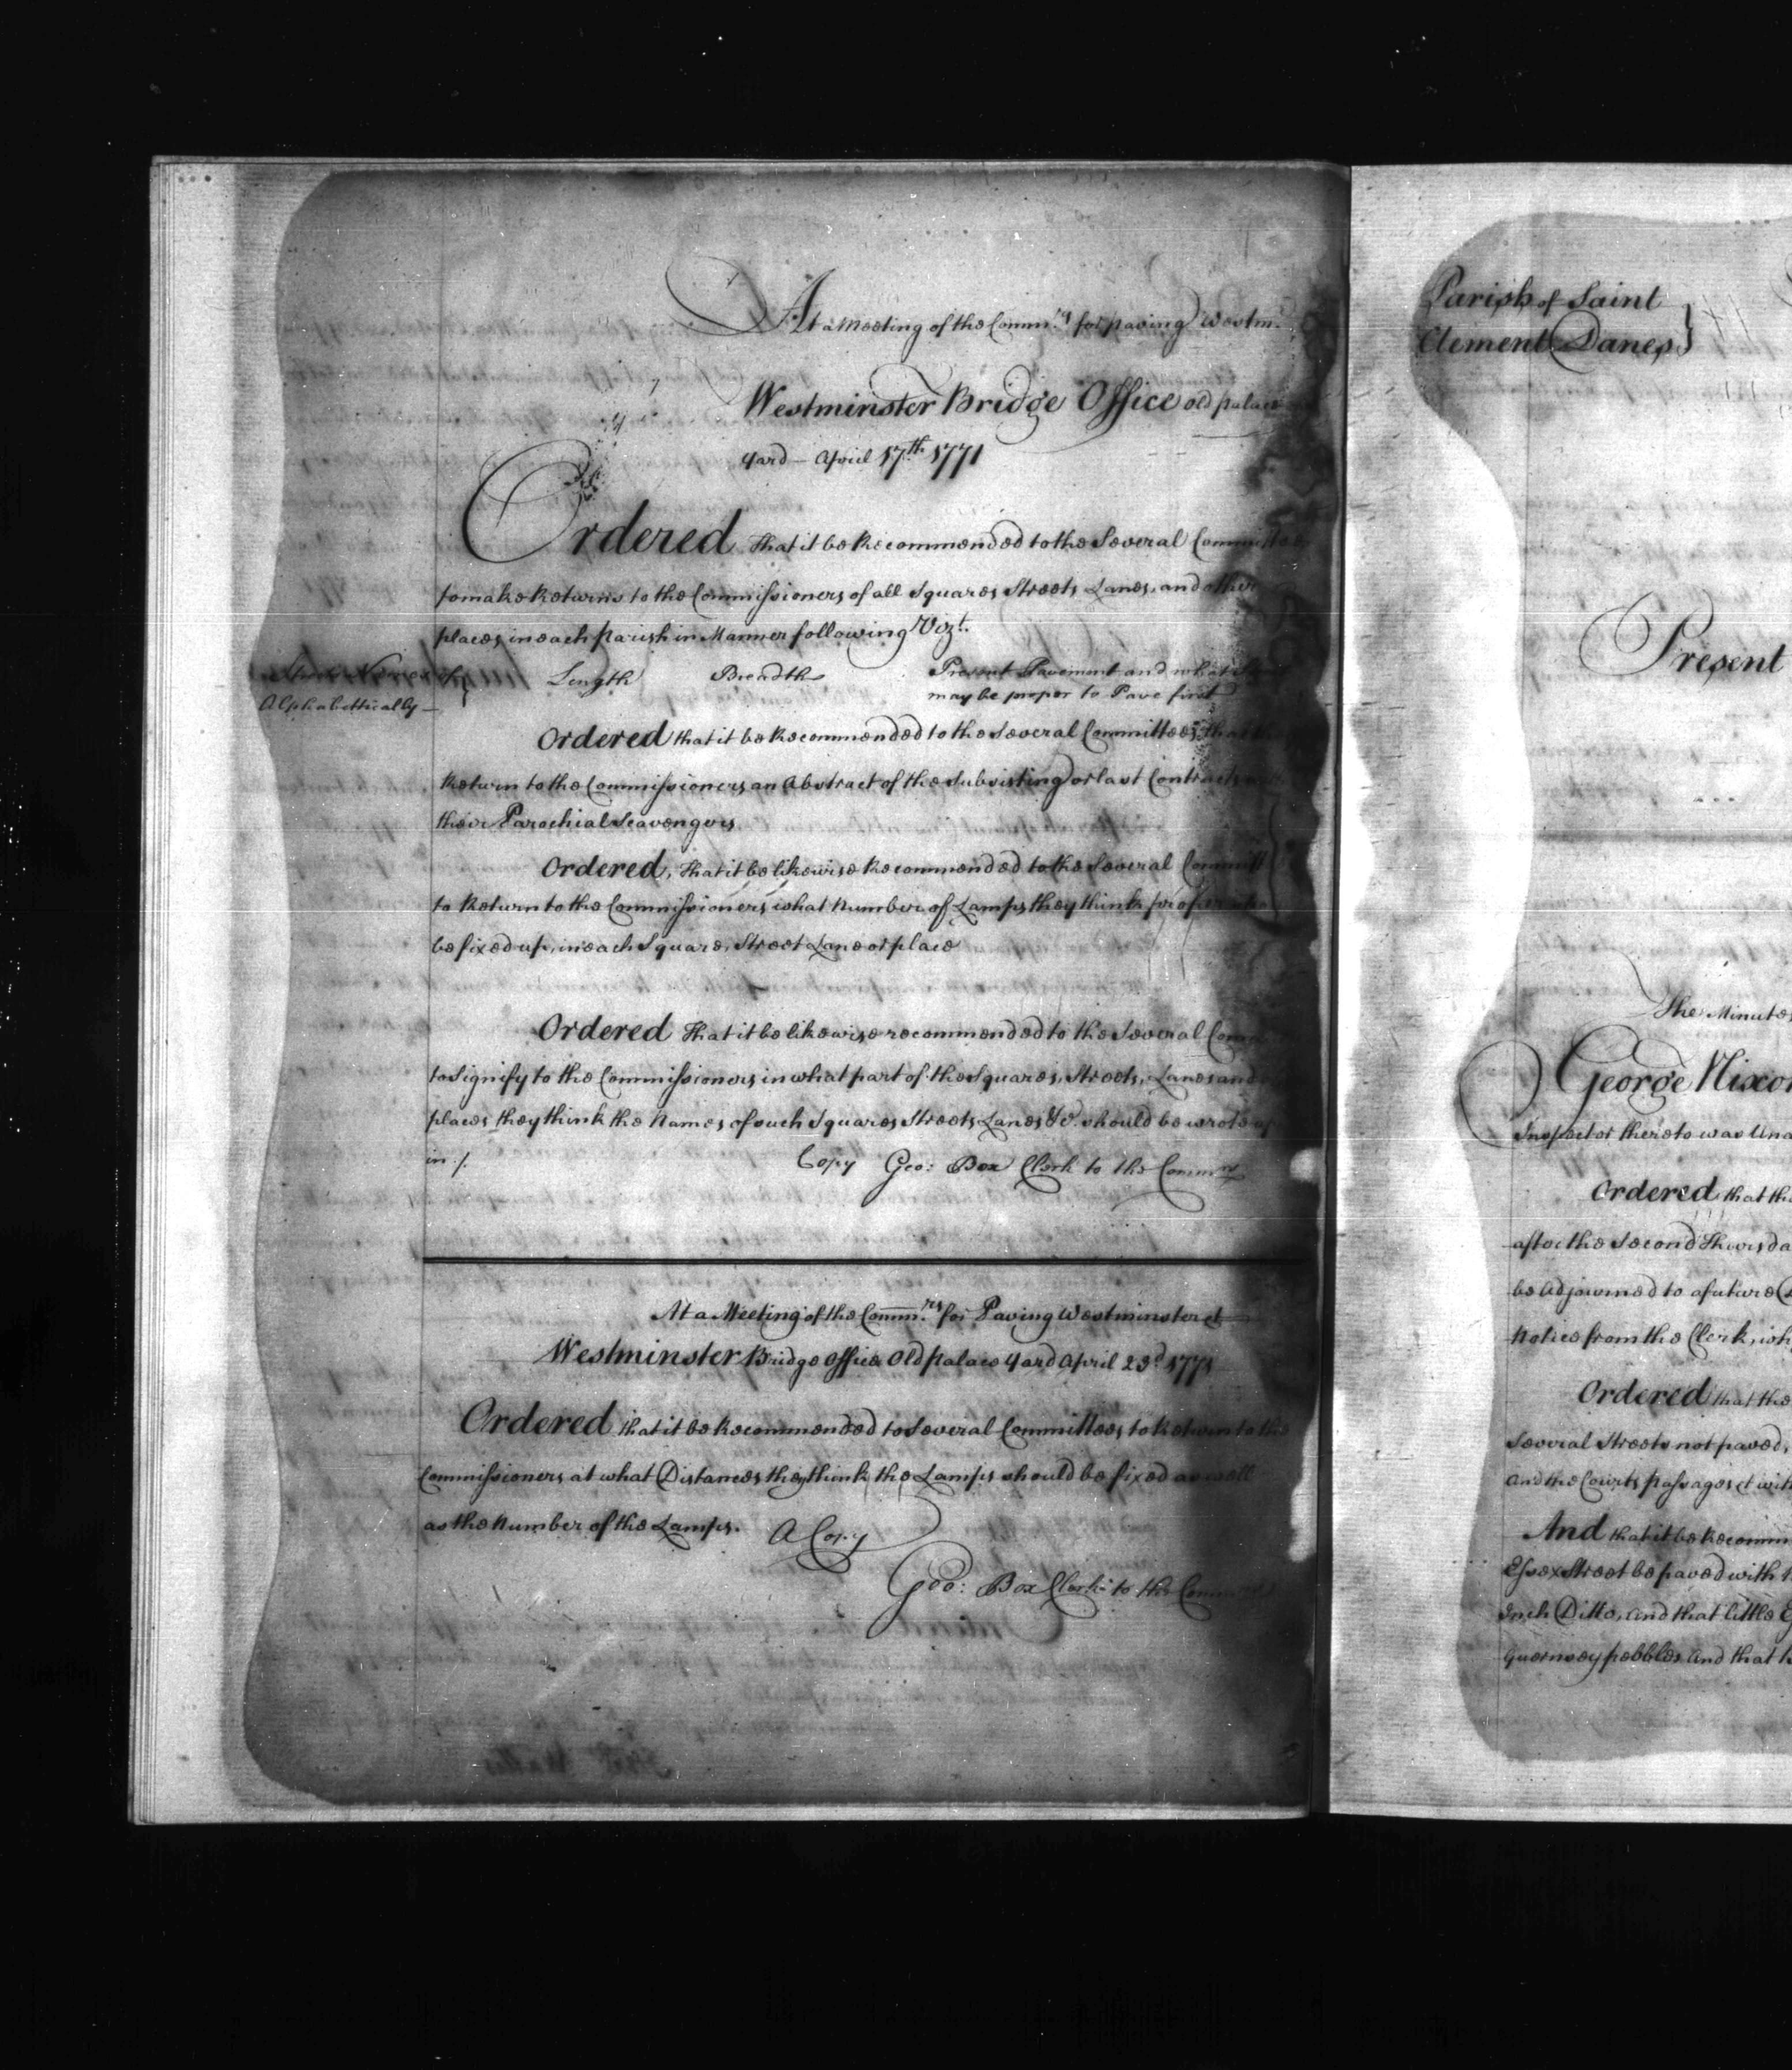 At a Meeting of the Comm.rs for paving Westm.r
Westminster Bridge Office old palace
Yard - April 17th. 1771
Ordered that it be Recommended to the Several Committees
to make Returns to the Commissioners of all Squares Streets Lanes, and other
places, in each parish in Manner following Vizt.
Alphabettically— Length Breadth Present Pavement and what
may be proper to Pave first
Ordered that it be Recommended to the Several Committees, that
Return to the Commissioners, an Abstract of the subsisting or last Contracts
their Parochial Scavengers
Ordered, that it be likewise Recommended to the Several Committ
to Return to the Commissioners, what Number of Lamps they think proper
be fixed up, in each Square, Street Lane or place
Ordered That it be likewise recommended to the Several
to Signify to the Commissioners in what part of the Squares, Streets, Lanes and
places they think the Names of such Squares Streets Lanes &c. should be wrote up
in /. Copy Geo: Box Clerk to the Commrs
At a Meeting of the Comm.rs for Paving Westminster &
Westminster Bridge Office Old Palace Yard April 23d 1771
Ordered that it be Recommended to Several Committees to Return to the
Commissioners at what Distances they think the Lamps should be fixed as well
as the Number of the Lamps. A Copy
Geo: Box Clerk to the
Parish of Saint
Clement Danes}
Present
The Minutes
George Nixon
Inspector thereto was
Ordered that the
after the Second Thursda
be Adjourned to a future
Notice from the Clerk,
Ordered that the
Several Streets not paved,
and the Courts passages &
And that it be Recomm
Essex Street be paved with
Inch Ditto, and that little
Guernsey pebbles and that